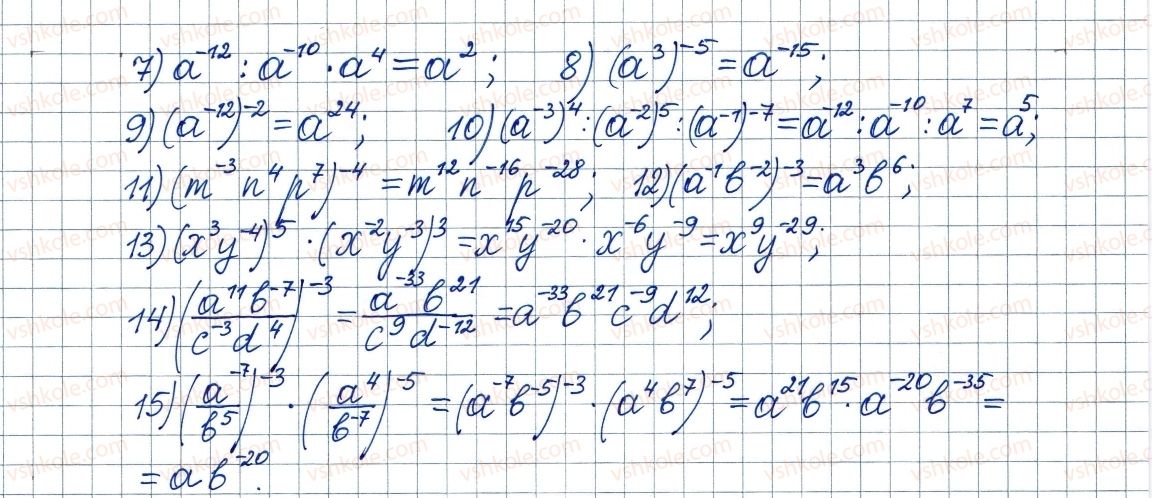 7) a⁻¹² : a⁻¹⁰ · a⁴ = a²; 8) (a³)⁻⁵ = a⁻¹⁵;
9) (a⁻¹²)⁻² = a²⁴; 10) (a⁻³)⁴ : (a⁻²)⁵ : (a⁻¹)⁻⁷ = a⁻¹² : a⁻¹⁰ : a⁷ = a⁵;
11) (m⁻³n⁴p⁷)⁻⁴ = m¹²n⁻¹⁶p⁻²⁸; 12) (a⁻¹b⁻²)⁻³ = a³b⁶;
13) (x³y⁻⁴)⁵ · (x⁻²y⁻³)³ = x¹⁵y⁻²⁰ · x⁻⁶y⁻⁹ = x⁹y⁻²⁹;
14) (a¹¹b⁻⁷/c⁻³d⁴)⁻³ = a⁻³³b²¹/c⁹d⁻¹² = a⁻³³b²¹c⁻⁹d¹²;
15) (a⁻⁷/b⁵)⁻³ · (a⁴/b⁻⁷)⁻⁵ = (a⁻⁷b⁻⁵)⁻³ · (a⁴b⁷)⁻⁵ = a²¹b¹⁵ · a⁻²⁰b⁻³⁵ =
= ab⁻²⁰.